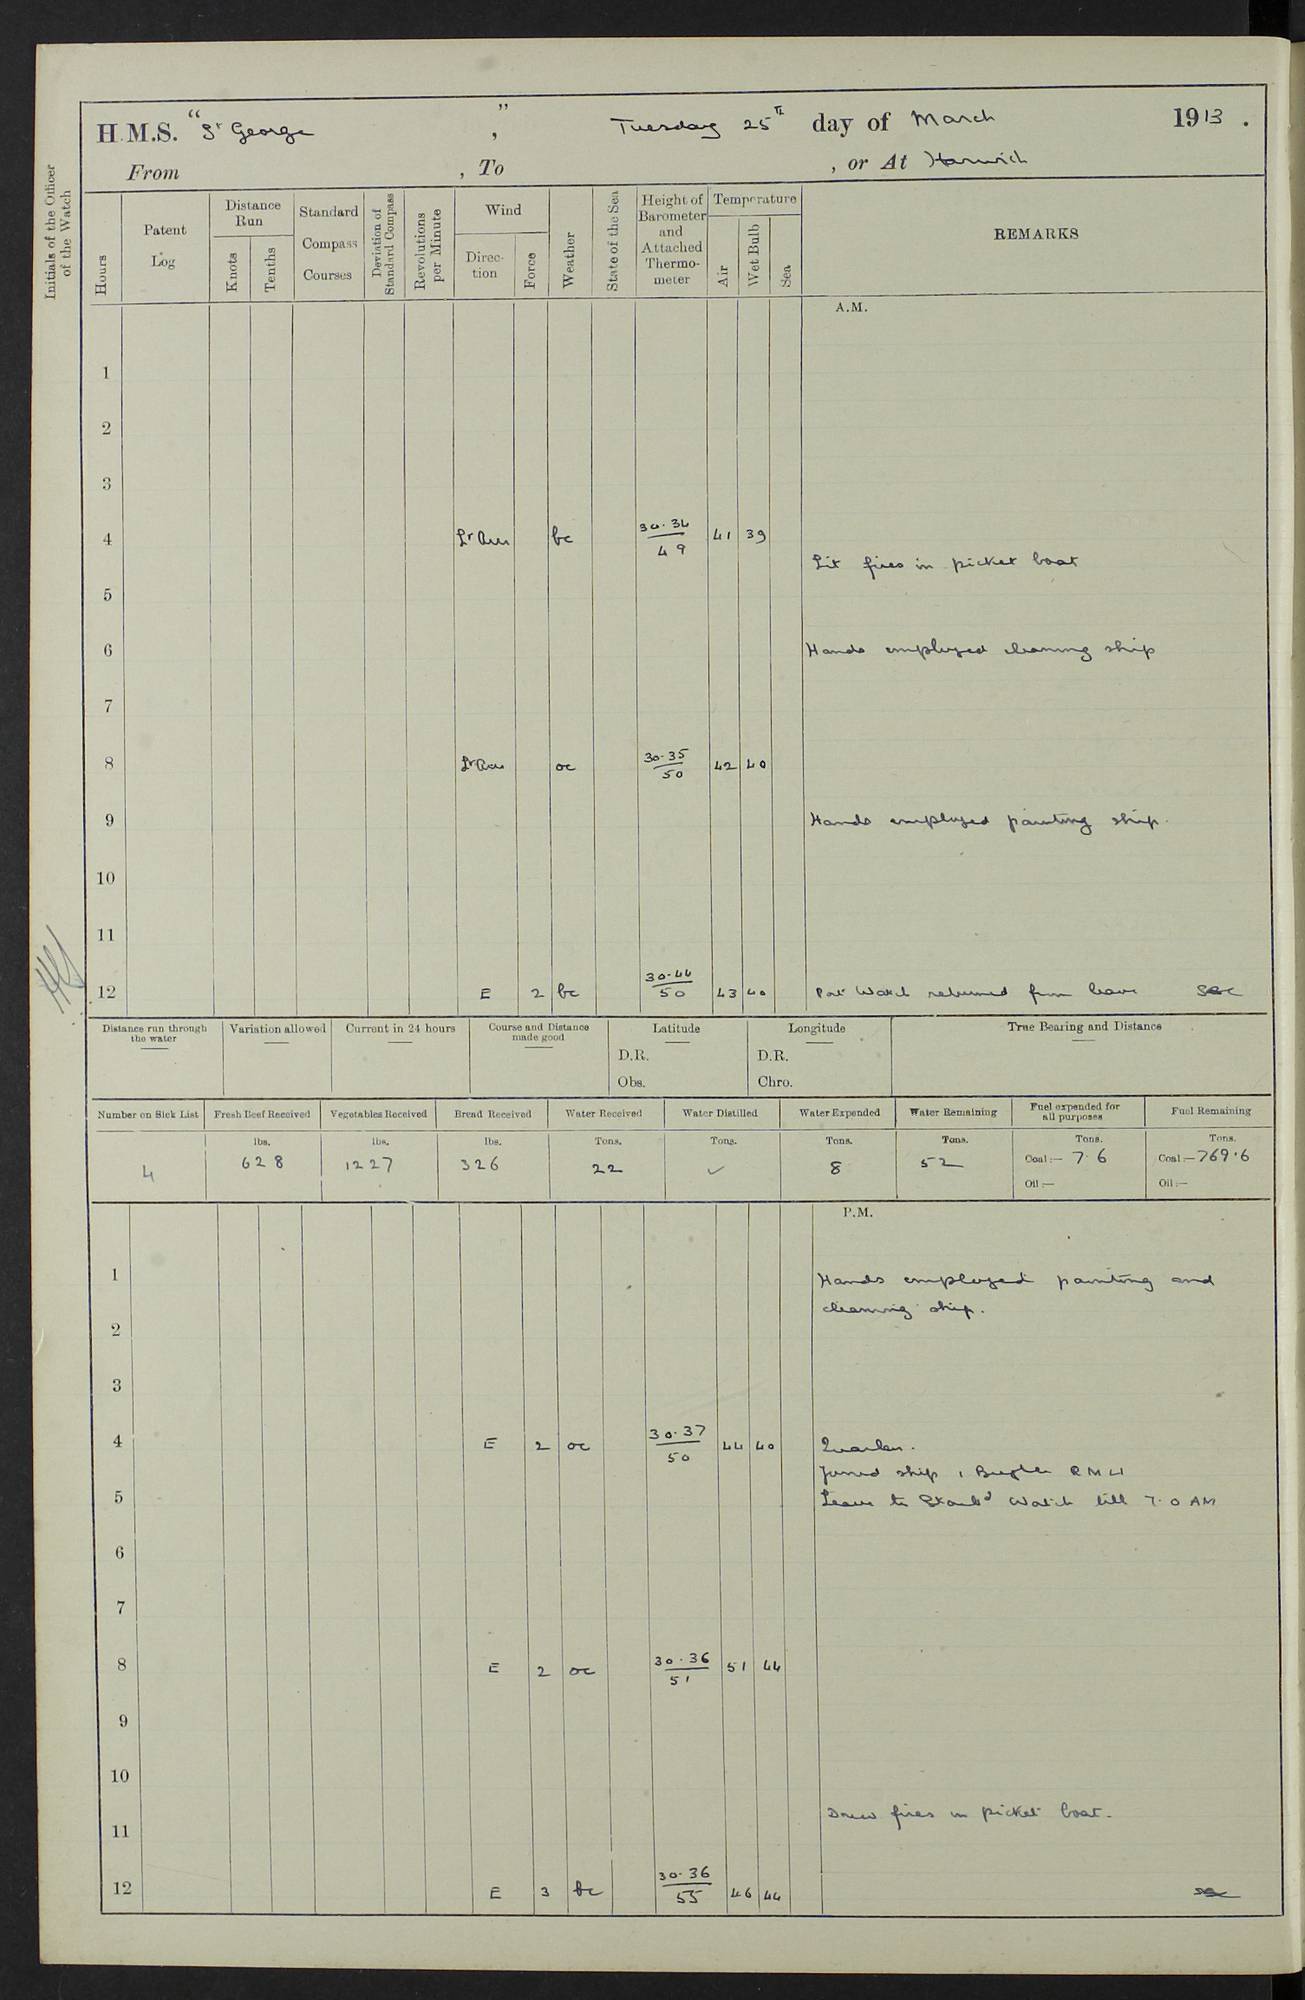 H.M.S. "St George", Tuesday 25th day of March 1913.
From , To , or At Harwich
Initials of the Officer of the Watch
Hours
Patent Log
Distance Run
Knots
Tenths
Standard Compass Courses
Deviation of Standard Compass
Revolutions per Minute
Wind
Direction
Force
Weather
State of the Sea
Height of Barometer and Attached Thermometer
Temperature
Air
Wet Bulb
Sea
REMARKS
A.M.
1
2
3
4 Lt Airs bc 30.34 49 41 39
Lit fires in picket boat
5
6 Hands employed cleaning ship
7
8 Lt Airs oc 30.35 50 42 40
9 Hands employed painting ship.
10
11
12 E 2 bc 30.44 50 43 40 Port Watch returned from leave
Distance run through the water
Variation allowed
Current in 24 hours
Course and Distance made good
Latitude
D.R.
Obs.
Longitude
D.R.
Chro.
True Bearing and Distance
Number on Sick List
Fresh Beef Received
Vegetables Received
Bread Received
Water Received
Water Distilled
Water Expended
Water Remaining
Fuel expended for all purposes
Fuel Remaining
lbs. lbs. lbs. Tons. Tons. Tons. Tons. Tons. Tons.
4 628 1227 326 22 ✓ 8 52 Coal:— 7.6 Coal:— 769.6
Oil:— Oil:—
P.M.
1 Hands employed painting and
cleaning ship.
2
3
4 E 2 oc 30.37 50 44 40 Quarters.
Joined ship 1 Bugler RMLI
5 Leave to Starbd Watch till 7.0 AM
6
7
8 E 2 oc 30.36 51 51 44
9
10
Drew fires in picket boat.
11
12 E 3 bc 30.36 55 46 44